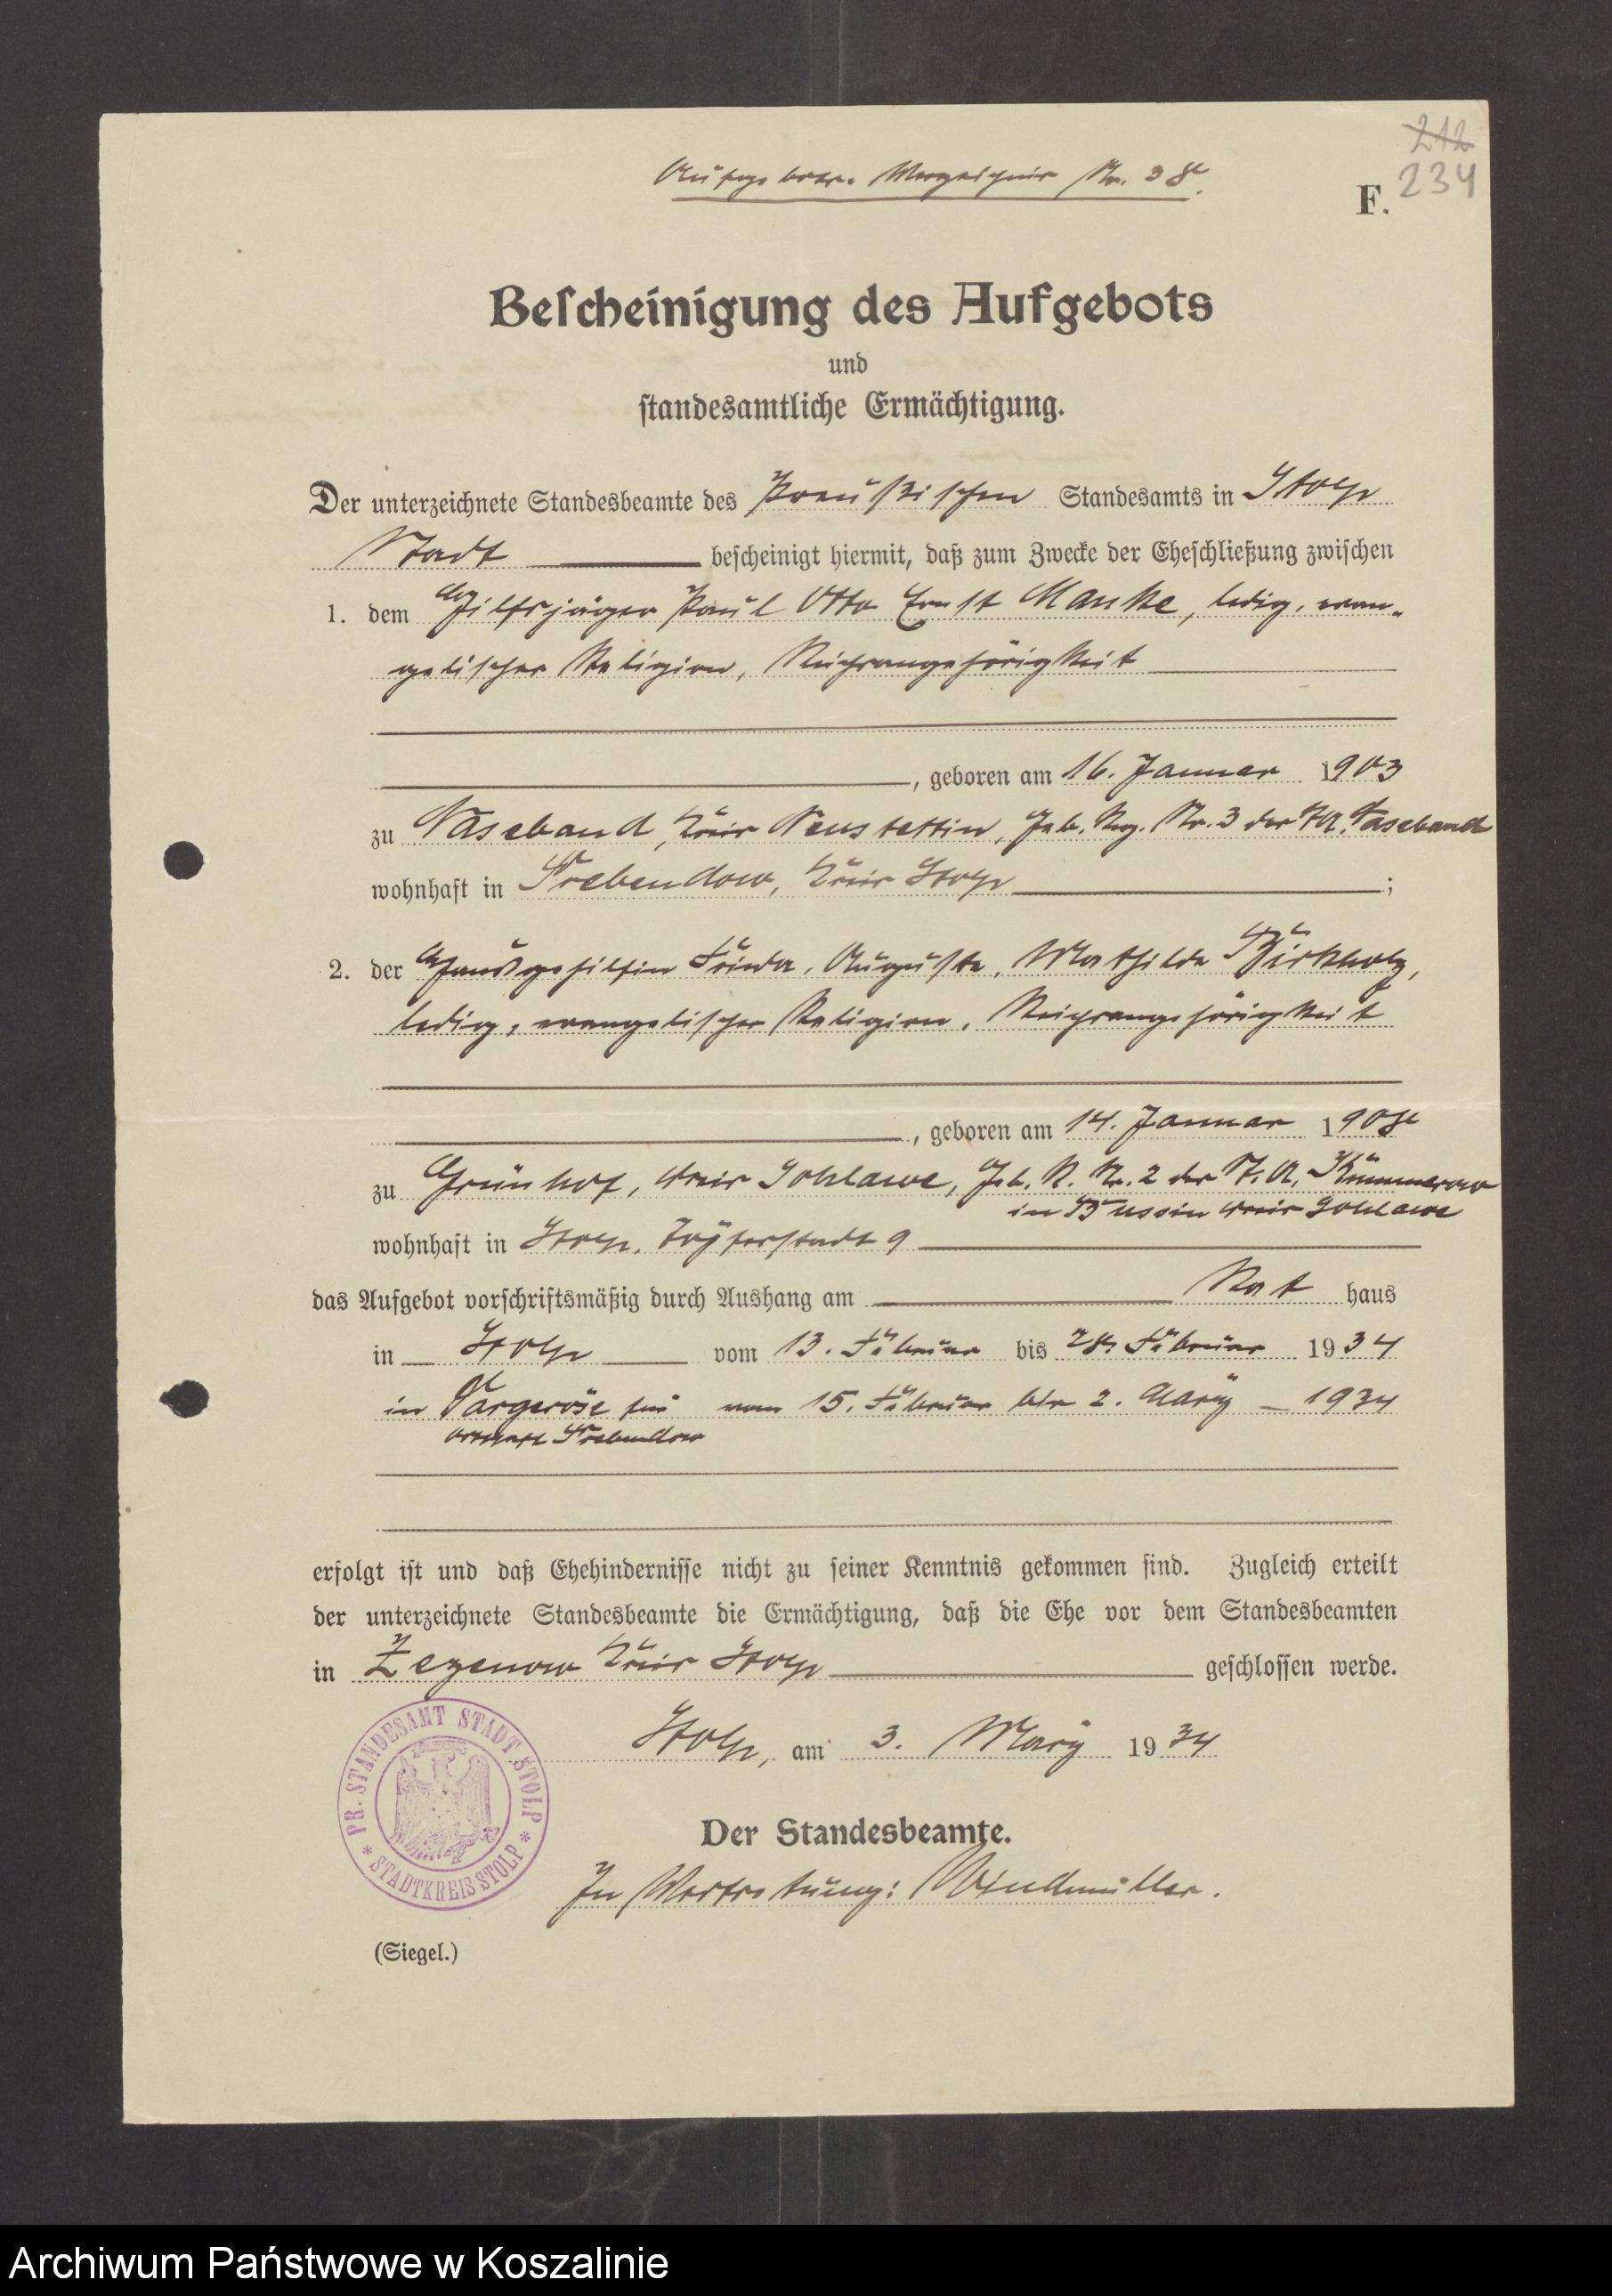 212
234
Aufgebots-Verzeichnis Nr. 38.
F.
Bescheinigung des Aufgebots
und
standesamtliche Ermächtigung.
Der unterzeichnete Standesbeamte des Preußischen Standesamts in Stolp
Stadt bescheinigt hiermit, daß zum Zwecke der Eheschließung zwischen
1. dem Hilfsjäger Paul Otto Ernst Manke, ledig, evan-
gelischer Religion, Reichsangehörigkeit
, geboren am 16. Januar 1903
zu Vaseband, Kreis Neustettin, Geb. Reg. Nr. 3 der StA. Vaseband
wohnhaft in Trebendow, Kreis Stolp ;
2. der Hausgehilfin Frieda, Auguste, Mathilde Birkholz,
ledig, evangelischer Religion, Reichsangehörigkeit
, geboren am 14. Januar 1908
zu Grünhof, Kreis Schlawe, Geb. R. Nr. 2 der St. A. Kummerow
in Bussin Kreis Schlawe
wohnhaft in Stolp, Töpferstadt 9
das Aufgebot vorschriftsmäßig durch Aushang am Rat haus
in Stolp vom 13. Februar bis 28. Februar 1934
in Vargeröse für vom 15. Februar bis 2. März – 1934
Ortschaft Trebendow
erfolgt ist und daß Ehehindernisse nicht zu seiner Kenntnis gekommen sind. Zugleich erteilt
der unterzeichnete Standesbeamte die Ermächtigung, daß die Ehe vor dem Standesbeamten
in Zezenow Kreis Stolp geschlossen werde.
Stolp, am 3. März 1934
PR. STANDESAMT STADT STOLP * STADTKREIS STOLP *
Der Standesbeamte.
In Vertretung: Windmüller.
(Siegel.)
Archiwum Państwowe w Koszalinie